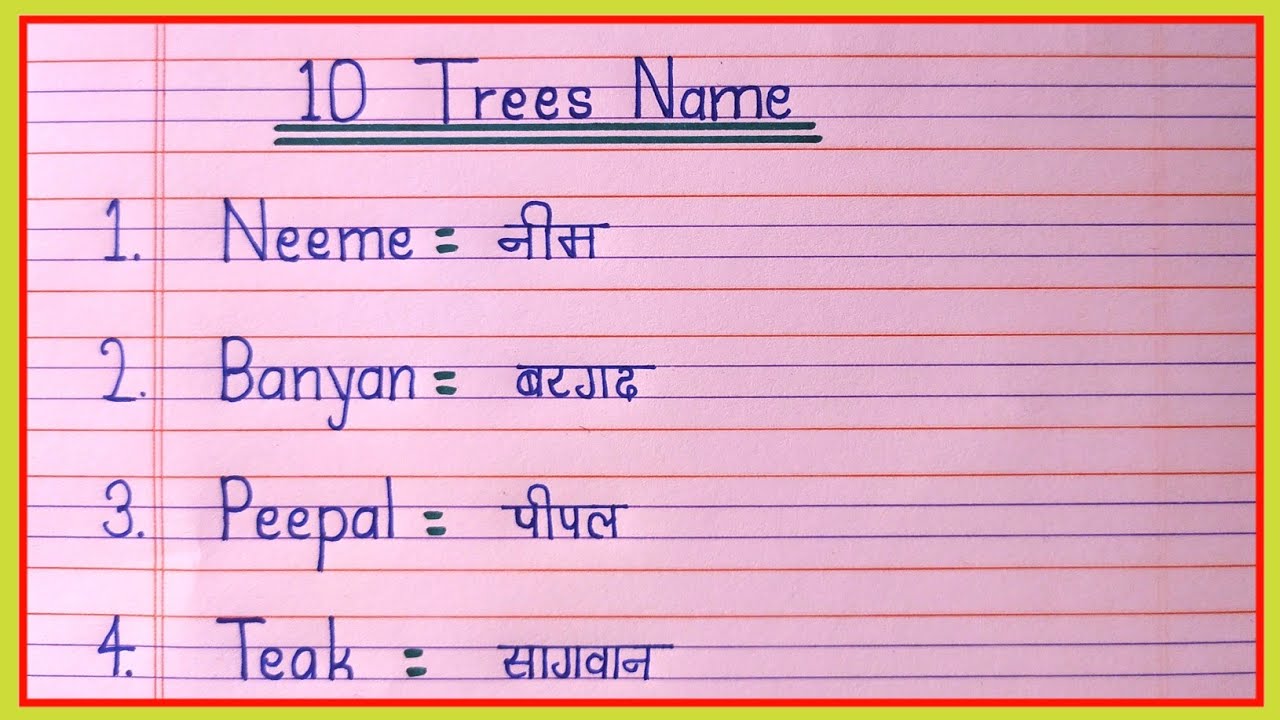 10 Trees Name
1. Neeme = नीम
2. Banyan = बरगद
3. Peepal = पीपल
4. Teak = सागवान